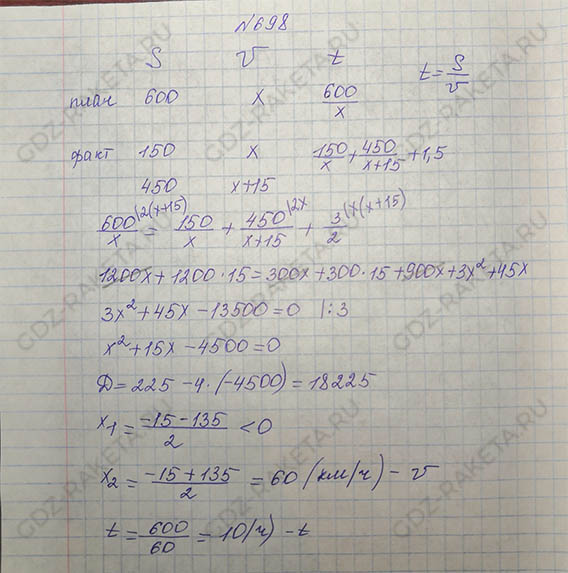 №698
S v t
t = S/v
план 600 x 600/x
факт 150 x 150/x + 450/(x+15) + 1,5
450 x+15
600/x |2(x+15) = 150/x + 450/(x+15) |2x + 3/2 |x(x+15)
1200x + 1200·15 = 300x + 300·15 + 900x + 3x² + 45x
3x² + 45x - 13500 = 0 |:3
x² + 15x - 4500 = 0
Д = 225 - 4·(-4500) = 18225
x₁ = (-15-135)/2 < 0
x₂ = (-15+135)/2 = 60 (км/ч) - v
t = 600/60 = 10(ч) - t
GDZ-RAKETA.RU